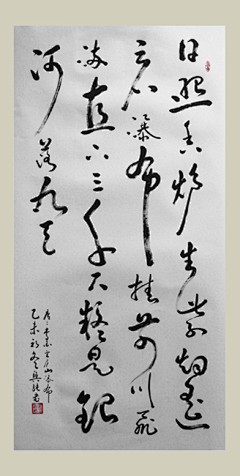 日照香炉生紫烟遥
看瀑布挂前川飞
流直下三千尺疑是銀
河落九天
望庐山瀑布
乙未初冬